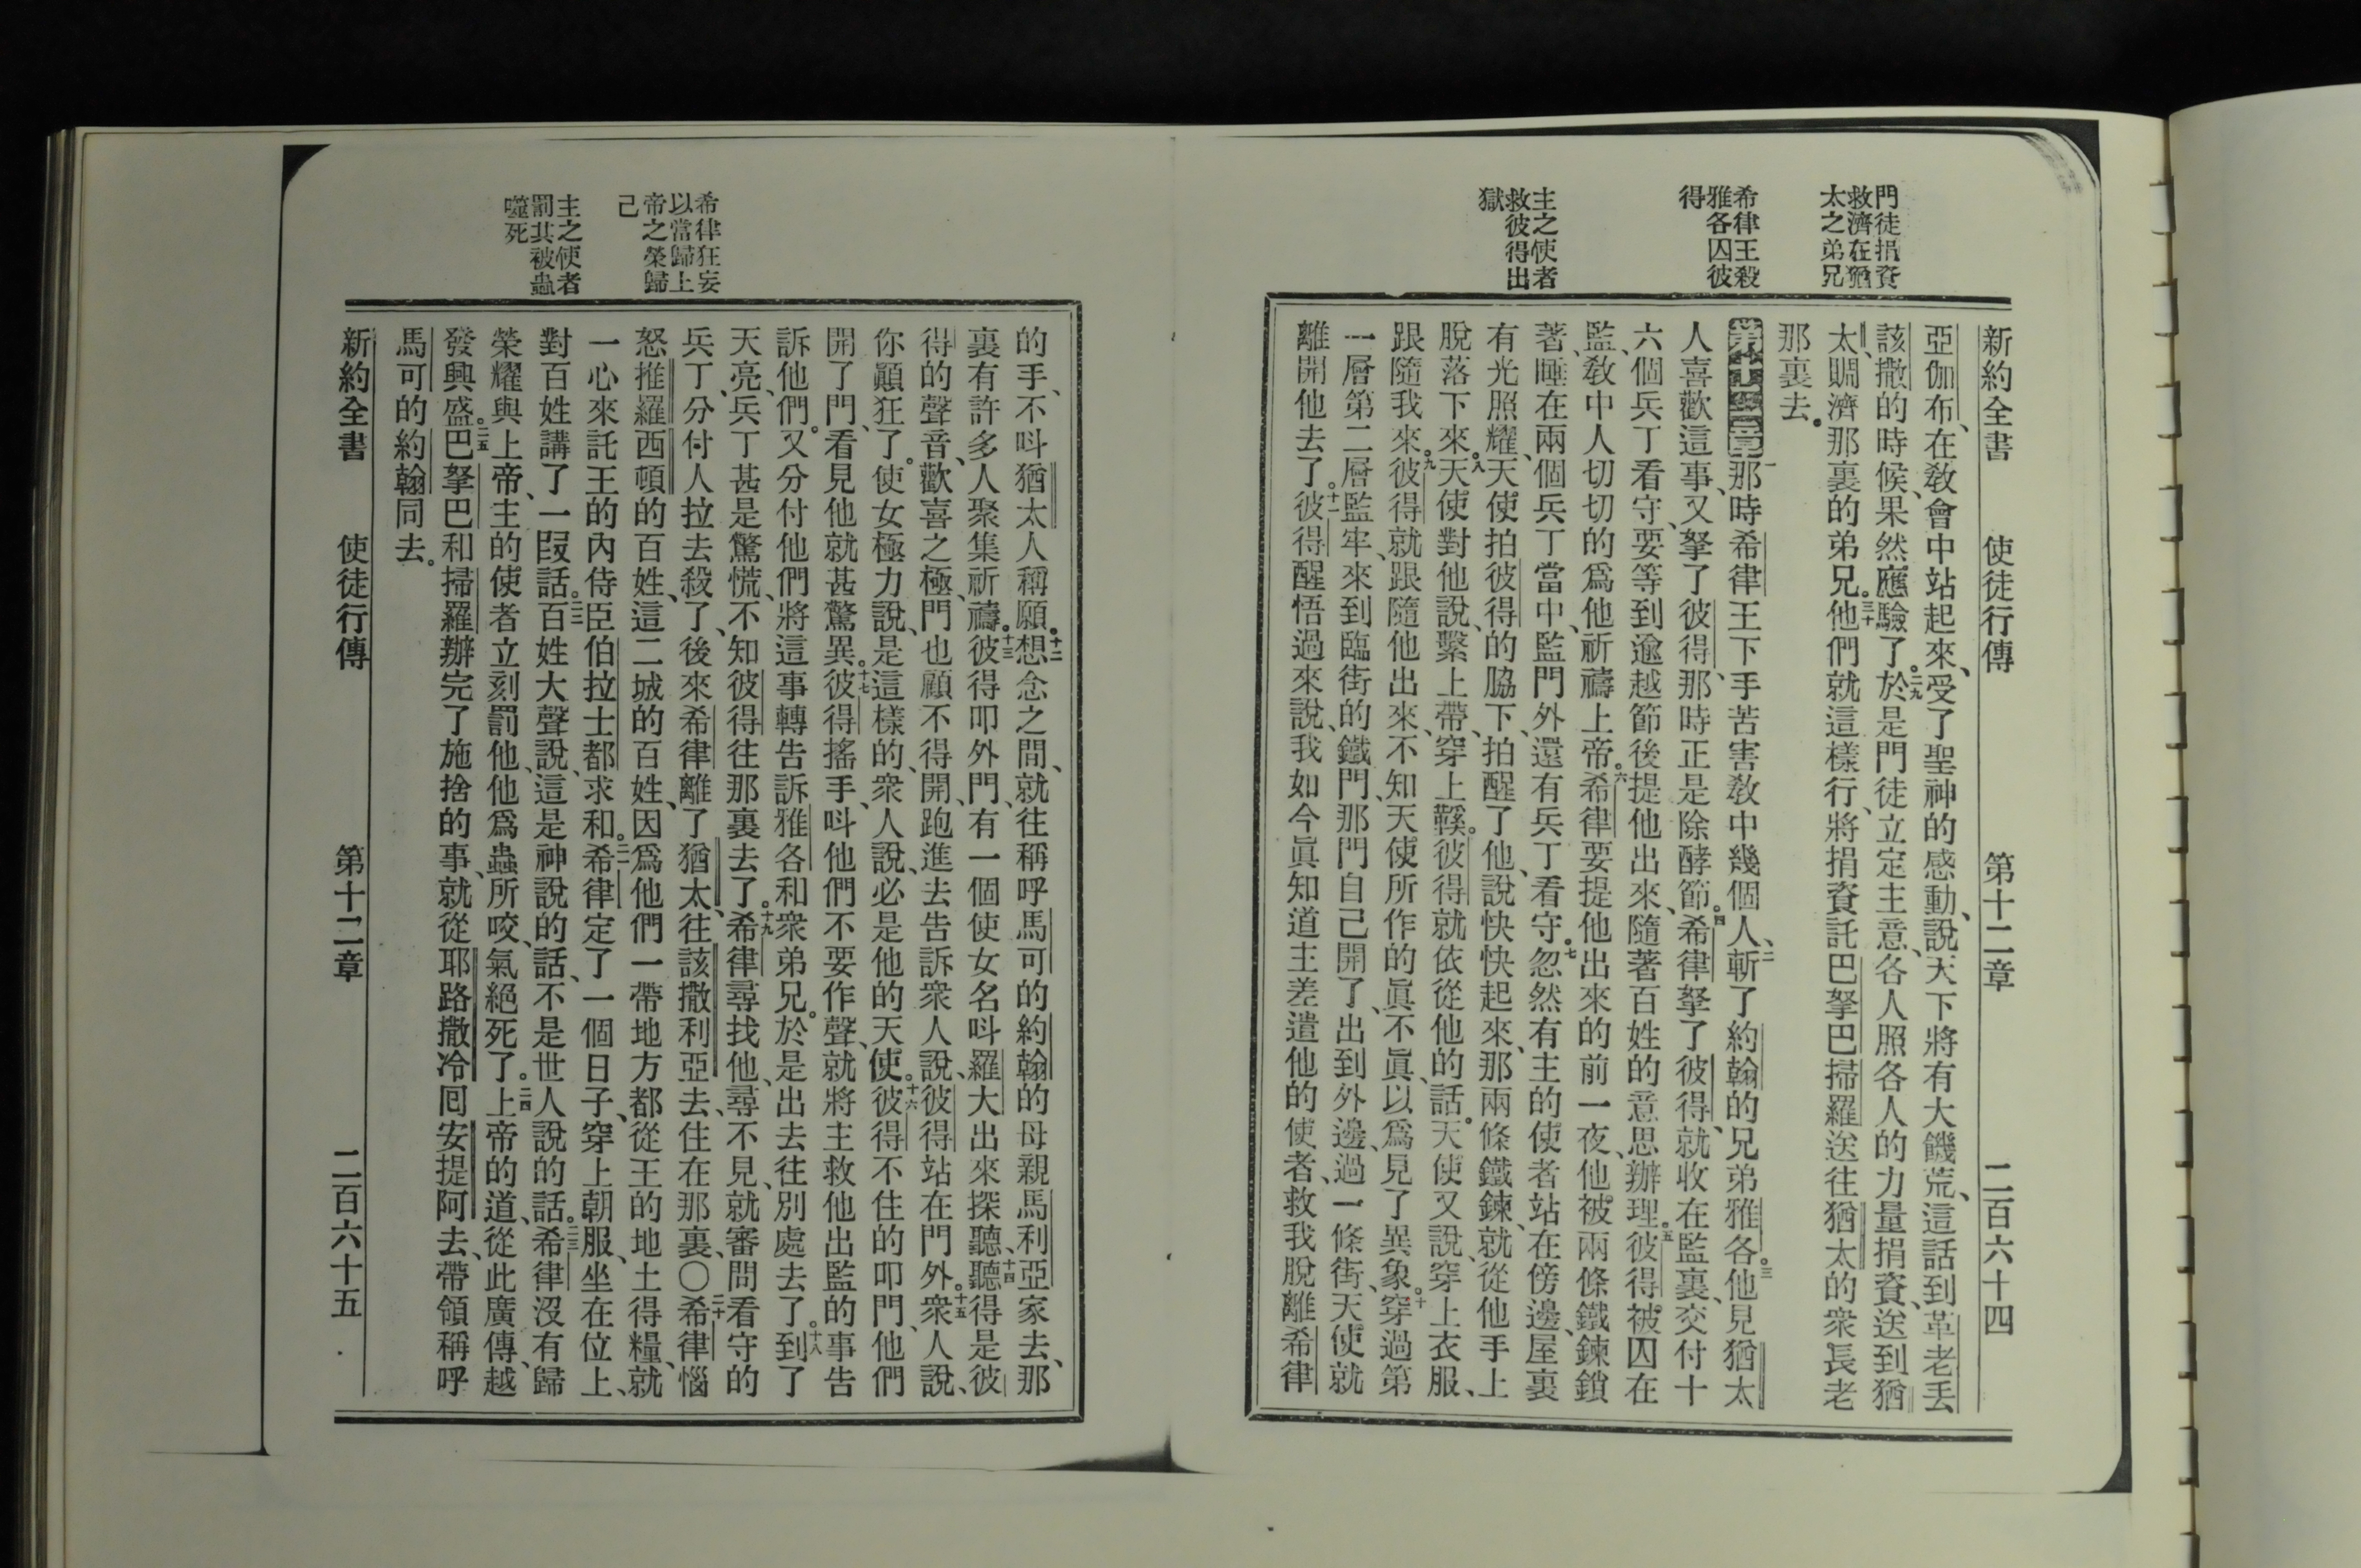 門徒捐資
救濟在猶
太之弟兄
希律王殺
雅各囚彼
得
主之使者
救彼得出
獄
新約全書 使徒行傳 第十二章 二百六十四
亞伽布、在敎會中站起來、受了聖神的感動、說、天下將有大饑荒、這話到革老丢
該撒的時候、果然應驗了。二九於是門徒立定主意、各人照各人的力量捐資、送到猶
太、賙濟那裏的弟兄。三十他們就這樣行、將捐資託巴拏巴掃羅送往猶太的衆長老
那裏去。
第十二章一那時希律王下手苦害敎中幾個人、二斬了約翰的兄弟雅各。三他見猶太
人喜歡這事、又拏了彼得、那時正是除酵節。四希律拏了彼得、就收在監裏、交付十
六個兵丁看守、要等到逾越節後提他出來、隨著百姓的意思辦理。五彼得被囚在
監、敎中人切切的爲他祈禱上帝。六希律要提他出來的前一夜、他被兩條鐵鍊鎖
著、睡在兩個兵丁當中、監門外還有兵丁看守。七忽然有主的使者站在傍邊、屋裏
有光照耀、天使拍彼得的脇下、拍醒了他、說快快起來、那兩條鐵鍊、就從他手上
脫落下來。八天使對他說、繫上帶、穿上鞵。彼得就依從他的話。天使又說穿上衣服、
跟隨我來。九彼得就跟隨他出來、不知天使所作的眞不眞、以爲見了異象。十穿過第
一層第二層監牢、來到臨街的鐵門、那門自己開了、出到外邊、過一條街、天使就
離開他去了。十一彼得醒悟過來說、我如今眞知道主差遣他的使者、救我脫離希律
希律狂妄
以當歸上
帝之榮歸
己
主之使者
罰其被蟲
噬死
的手、不呌猶太人稱願。十二想念之間、就往稱呼馬可的約翰的母親馬利亞家去、那
裏有許多人聚集祈禱。十三彼得叩外門、有一個使女名呌羅大出來探聽、十四聽得是彼
得的聲音、歡喜之極、門也顧不得開、跑進去告訴衆人說、彼得站在門外。十五衆人說、
你顚狂了。使女極力說、是這樣的、衆人說、必是他的天使。十六彼得不住的叩門、他們
開了門、看見他就甚驚異。十七彼得搖手、呌他們不要作聲、就將主救他出監的事告
訴他們。又分付他們將這事轉告訴雅各和衆弟兄。於是出去往別處去了。十八到了
天亮、兵丁甚是驚慌、不知彼得往那裏去了。十九希律尋找他、尋不見、就審問看守的
兵丁、分付人拉去殺了、後來希律離了猶太、往該撒利亞去、住在那裏、〇二十希律惱
怒推羅西頓的百姓、這二城的百姓、因爲他們一帶地方都從王的地土得糧、就
一心來託王的內侍臣伯拉士都求和。二一希律定了一個日子、穿上朝服、坐在位上、
對百姓講了一段話。二二百姓大聲說、這是神說的話、不是世人說的話。二三希律沒有歸
榮耀與上帝、主的使者立刻罰他、他爲蟲所咬、氣絕死了。二四上帝的道、從此廣傳、越
發興盛。二五巴拏巴和掃羅辦完了施捨的事、就從耶路撒冷囘安提阿去、帶領稱呼
馬可的約翰同去。
新約全書 使徒行傳 第十二章 二百六十五